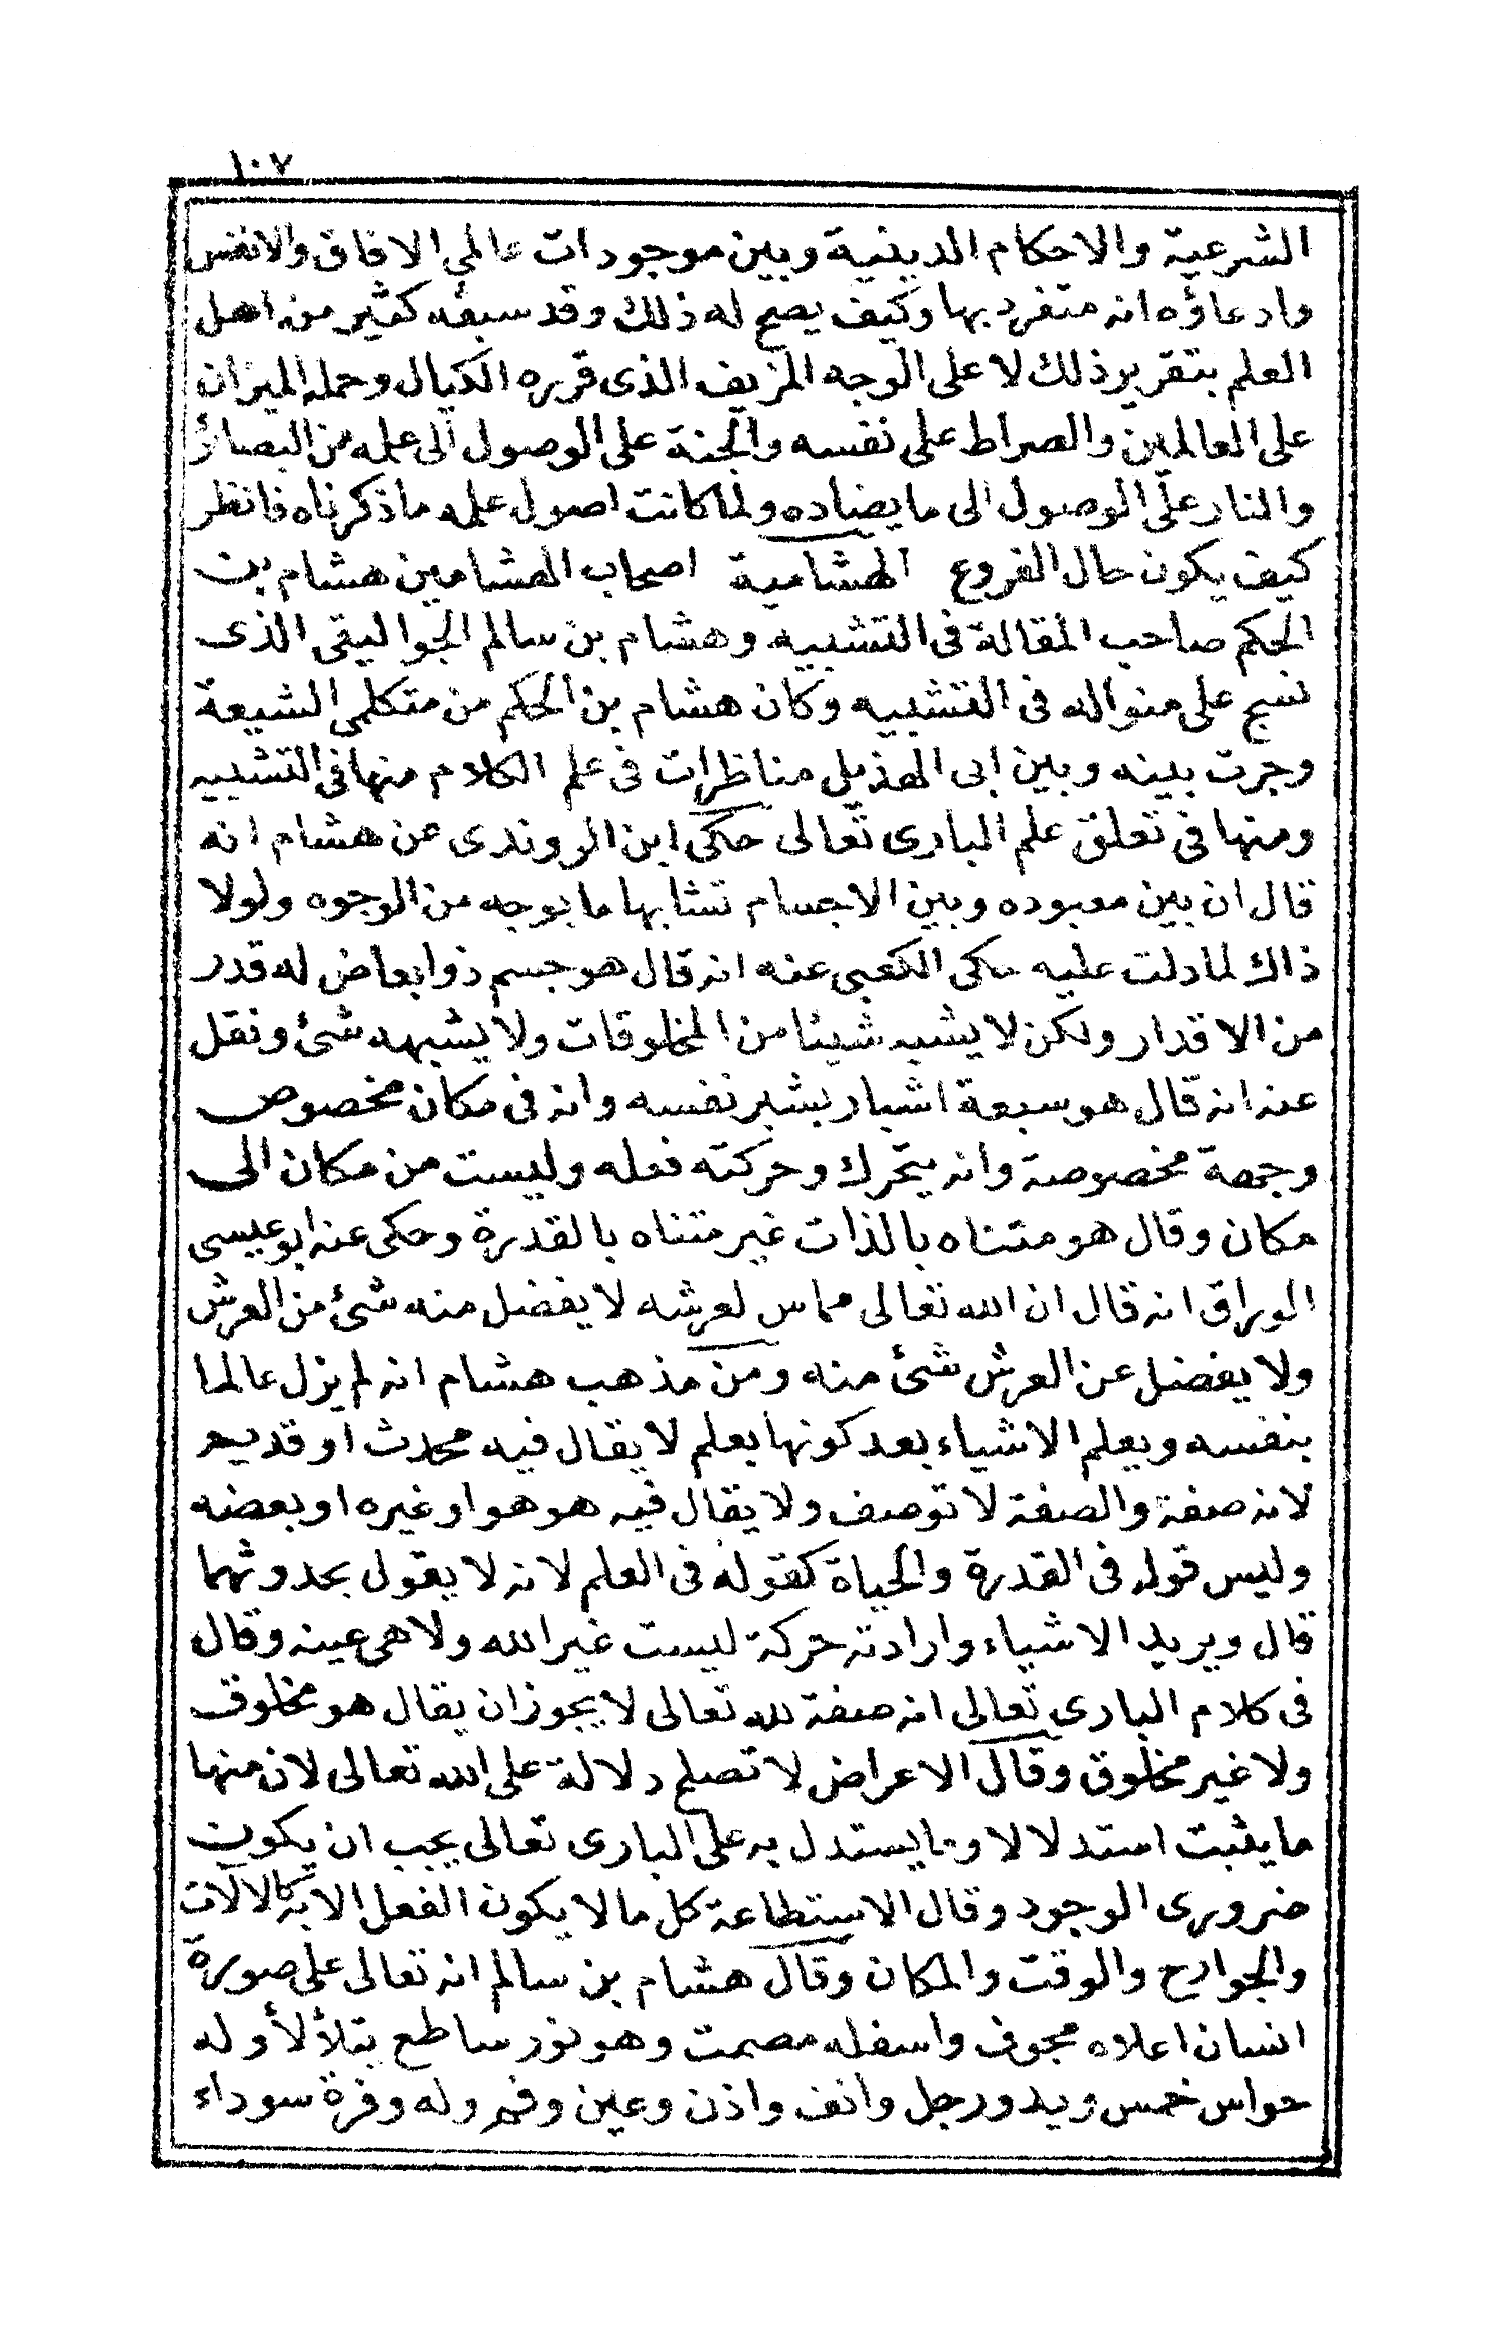 ١٠٧
الشرعية والاحكام الدينية وبين موجودات عالمي الافاق والانفس
وادعاؤه انه متفرد بها وكيف يصح له ذلك وقد سبقه كثير من اهل
العلم بتقرير ذلك لا على الوجه المزيف الذى قرره الكيال وحمله الميزان
على العالمين والصراط على نفسه والجنة على الوصول الى علمه من البصائر
والنار على الوصول الى ما يضاده ولما كانت اصول علمه ما ذكرناه فانظر
كيف يكون حال الفروع الهشامية اصحاب الهشامين هشام بن
الحكم صاحب المقالة فى التشبيه وهشام بن سالم الجواليقى الذى
نسج على منواله فى التشبيه وكان هشام بن الحكم من متكلمى الشيعة
وجرت بينه وبين ابى الهذيل مناظرات فى علم الكلام منها فى التشبيه
ومنها فى تعلق علم البارى تعالى حكى ابن الروندى عن هشام انه
قال ان بين معبوده وبين الاجسام تشابها ما بوجه من الوجوه ولولا
ذاك لما دلت عليه حكى الكعبى عنه انه قال هو جسم ذو ابعاض له قدر
من الاقدار ولكن لا يشبه شيئا من المخلوقات ولا يشبهه شئ ونقل
عنه انه قال هو سبعة اشبار بشبر نفسه وانه فى مكان مخصوص
وجهة مخصوصة وانه يتحرك وحركته فعله وليست من مكان الى
مكان وقال هو متناه بالذات غير متناه بالقدرة وحكى عنه ابو عيسى
الوراق انه قال ان الله تعالى مماس لعرشه لا يفضل منه شئ من العرش
ولا يفضل عن العرش شئ منه ومن مذهب هشام انه لم يزل عالما
بنفسه ويعلم الاشياء بعد كونها بعلم لا يقال فيه محدث او قديم
لانه صفة والصفة لا توصف ولا يقال فيه هو هو او غيره او بعضه
وليس قوله فى القدرة والحياة كقوله فى العلم لانه لا يقول بحدوثهما
قال ويريد الاشياء وارادته حركة ليست غير الله ولا هى عينه وقال
فى كلام البارى تعالى انه صفة لله تعالى لا يجوز ان يقال هو مخلوق
ولا غير مخلوق وقال الاعراض لا تصلح دلالة على الله تعالى لان منها
ما يثبت استدلالا وما يستدل به على البارى تعالى يجب ان يكون
ضرورى الوجود وقال الاستطاعة كل ما لا يكون الفعل الا به كالالات
والجوارح والوقت والمكان وقال هشام بن سالم انه تعالى على صورة
انسان اعلاه مجوف واسفله مصمت وهو نور ساطع يتلألأ وله
حواس خمس ويد ورجل وانف واذن وعين وفم وله وفرة سوداء